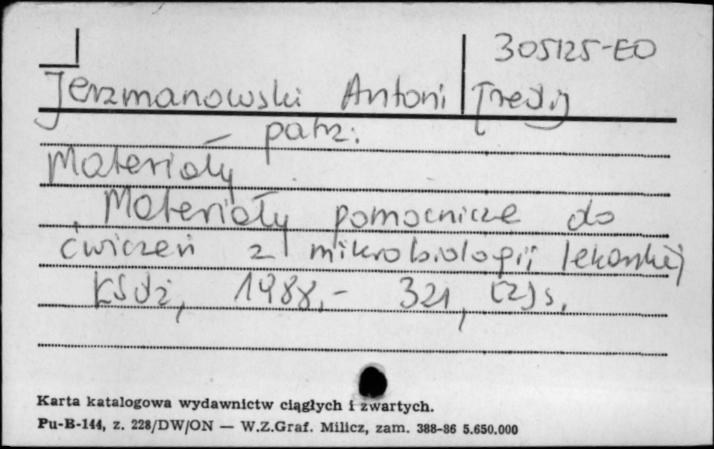 305125-EO
Jerzmanowski Antoni [red.]
patrz:
Materiały
Materiały pomocnicze do
ćwiczeń z mikrobiologii lekarskiej
1988.- 321, [2] s.
Karta katalogowa wydawnictw ciągłych i zwartych.
Pu-B-144, z. 228/DW/ON — W.Z.Graf. Milicz, zam. 388-86 5.650.000